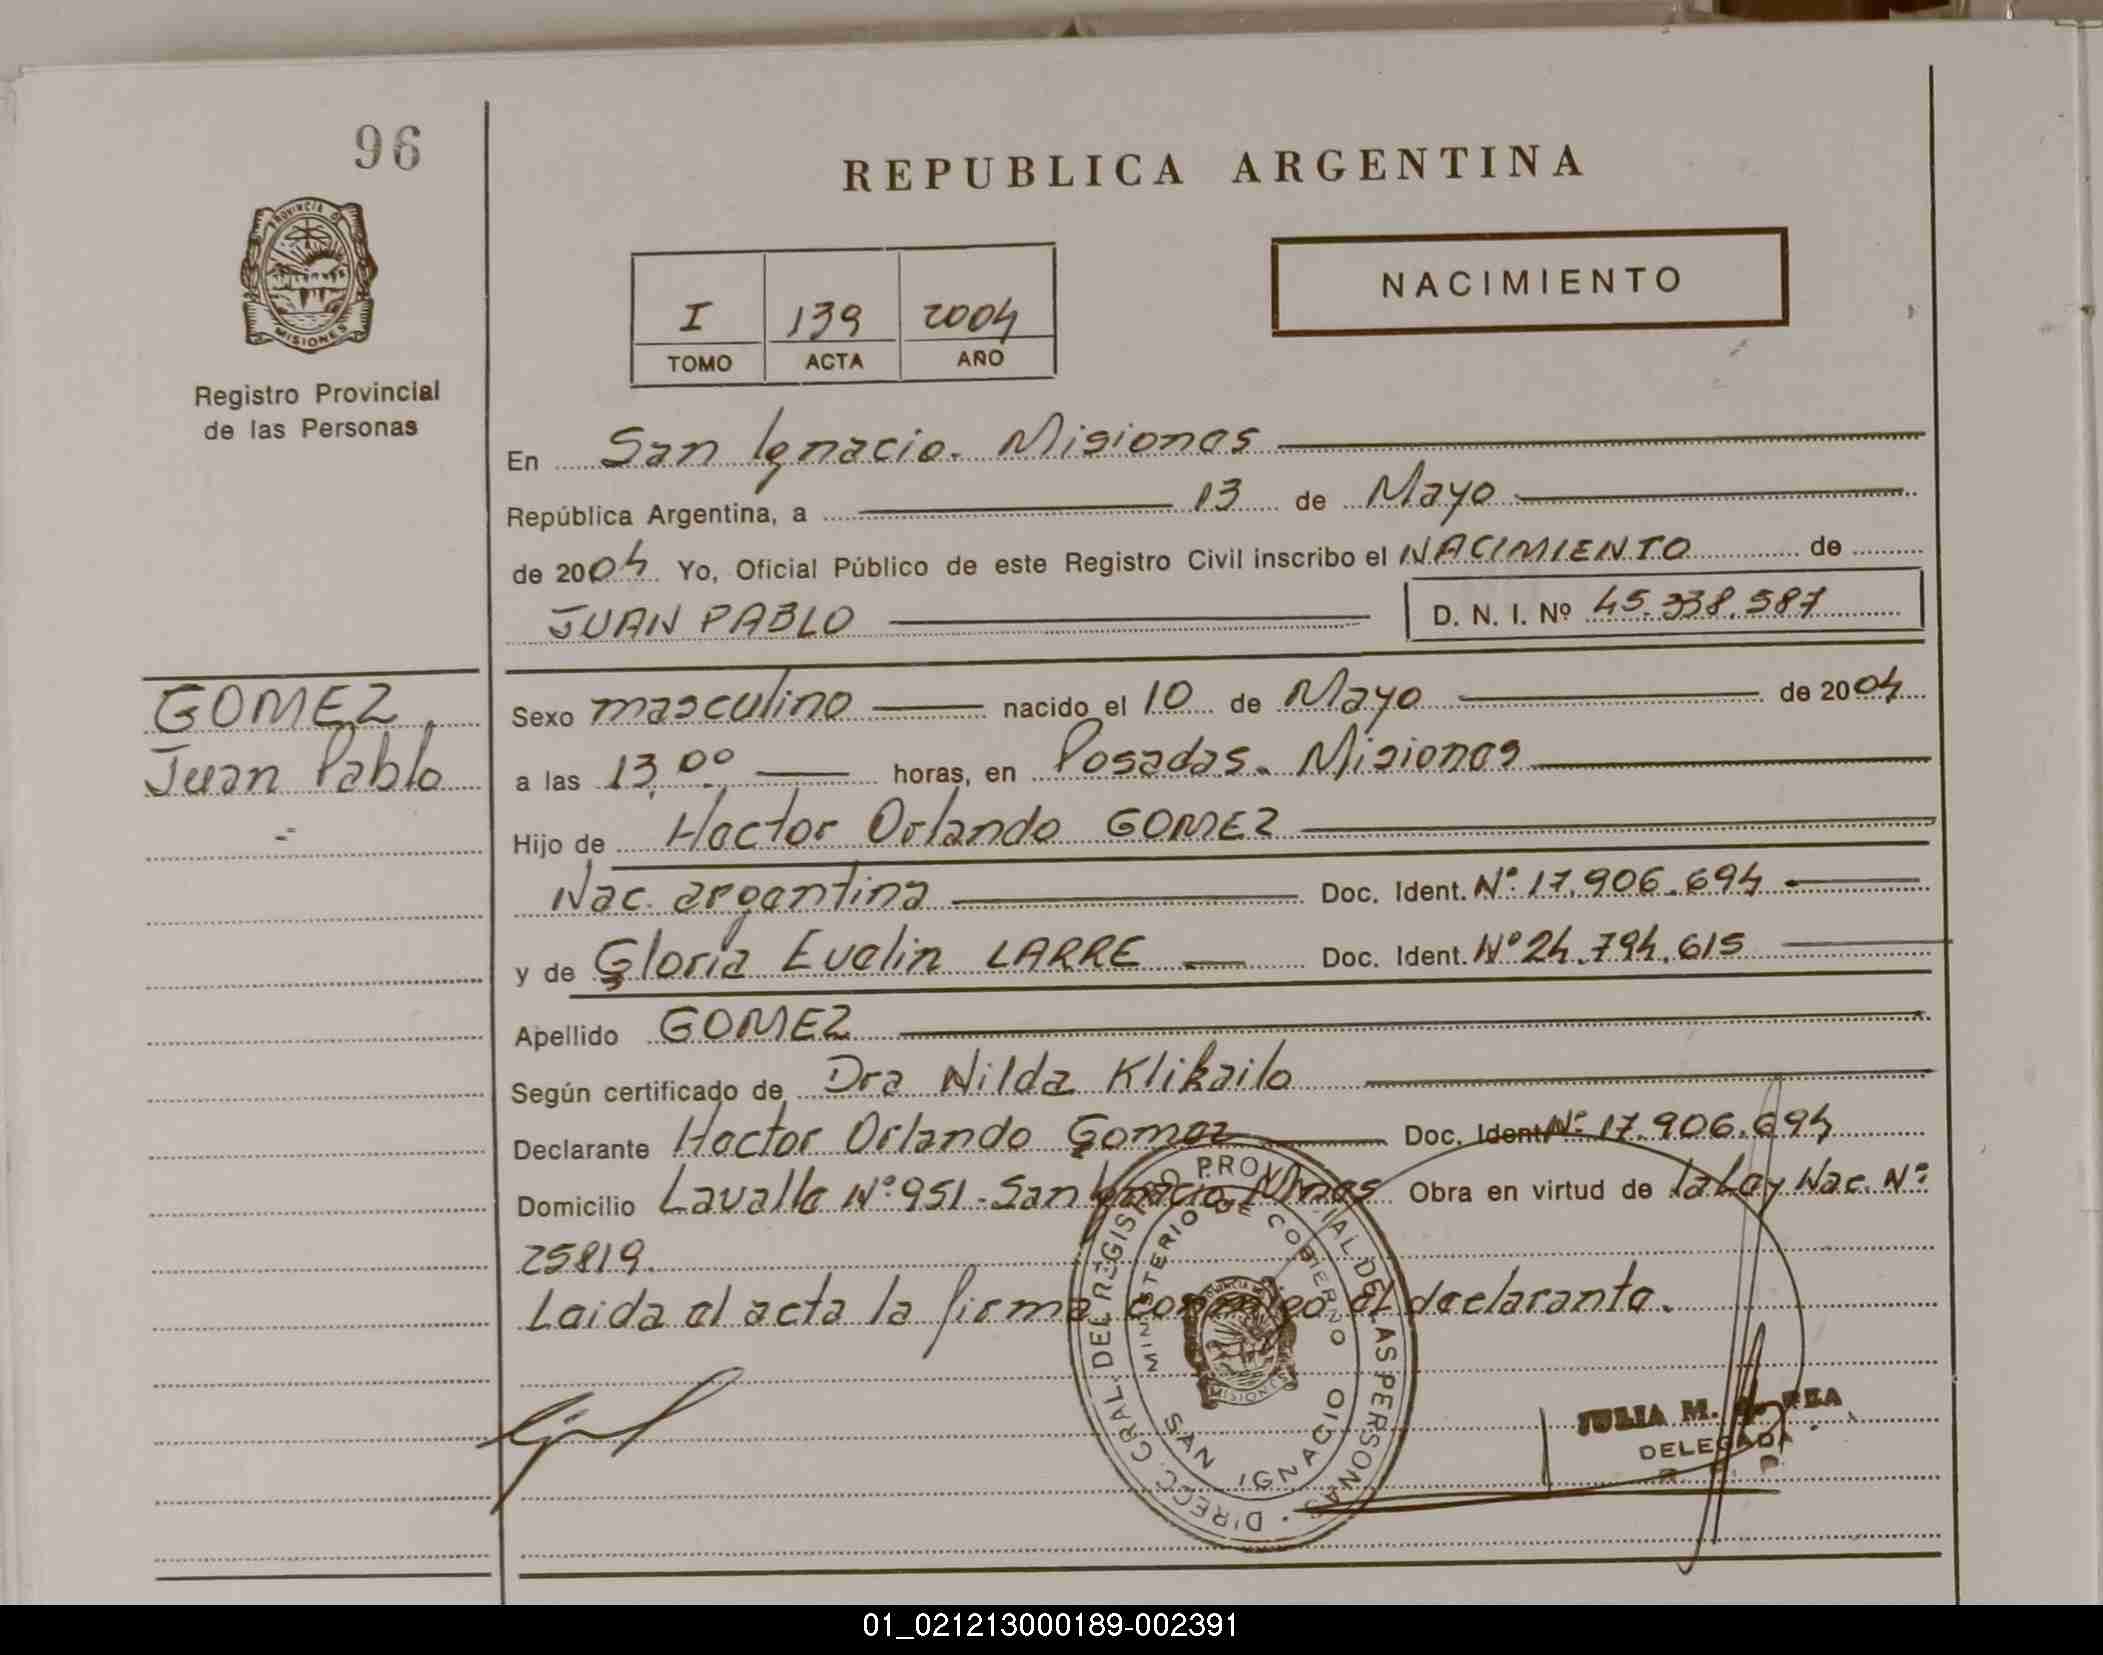 96
REPUBLICA ARGENTINA
PROVINCIA DE
MISIONES
Registro Provincial
de las Personas
NACIMIENTO
I 139 2004
TOMO ACTA AÑO
En San Ignacio. Misiones
República Argentina, a 13 de Mayo
de 2004 Yo, Oficial Público de este Registro Civil inscribo el NACIMIENTO de
JUAN PABLO D. N. I. Nº 45.338.587
GOMEZ,
Juan Pablo
Sexo masculino nacido el 10 de Mayo de 2004
a las 13,00 horas, en Posadas. Misiones
Hijo de Hector Orlando GOMEZ
Nac. argentina Doc. Ident. Nº 17.906.694
y de Gloria Evelin LARRE Doc. Ident. Nº 24.794.615
Apellido GOMEZ
Según certificado de Dra Nilda Klikailo
Declarante Hector Orlando Gomez Doc. Ident Nº 17.906.694
Domicilio Lavalle Nº 951 - San Ignacio, Mnes Obra en virtud de la Ley Nac. Nº
25819.
Leida el acta la firma conmigo el declarante.
DIRECC. GRAL. DEL REGISTRO PROVINCIAL DE LAS PERSONAS
MINISTERIO DE GOBIERNO
SAN IGNACIO
MISIONES
JULIA M.
DELEGADA
01_021213000189-002391